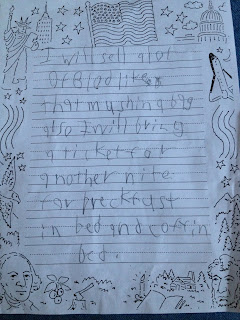 I will sell a lot
Of Blod like
that mushing bog
also I will bring
a ticket for
another nite
for breckfust
in bed and coffin
bed.